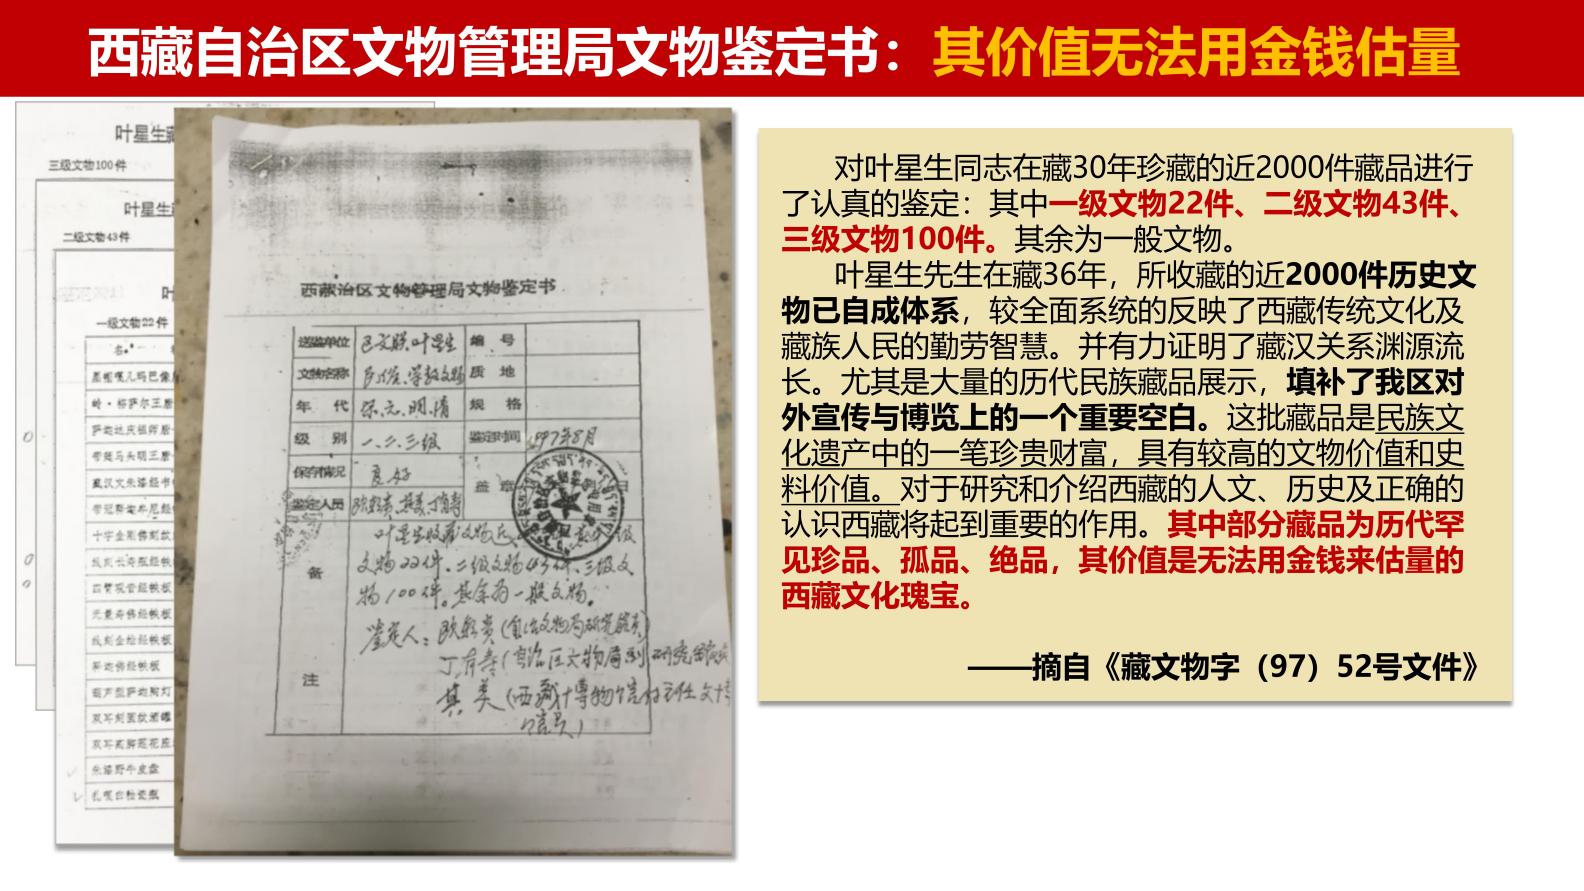 西藏自治区文物管理局文物鉴定书：其价值无法用金钱估量
叶星生藏
三级文物100件
叶星生
二级文物43件
叶
一级文物22件
名
岭·格萨尔王唐
萨迦法庆祖师唐
藏汉文朱漆经书
四臂观音经铁板
无量寿佛经铁板
线刻金轮经铁板
释迦佛经铁板
葫芦型萨迦陶灯
双耳刻图纹酒罐
朱漆野牛皮盘
西藏治区文物管理局文物鉴定书
送鉴单位 区文联.叶星生 编 号
文物名称 民俗、宗教文物 质 地
年 代 宋、元、明、清 规 格
级 别 一、二、三级 鉴定时间 1997年8月
保存情况 良好
盖 章
鉴定人员
叶星生收藏文物近
文物22件.二级文物43件.三级文
物100件。其余为一般文物。
备
注
鉴定人：欧朝贵（自治区文物局研究馆员）
对叶星生同志在藏30年珍藏的近2000件藏品进行
了认真的鉴定：其中一级文物22件、二级文物43件、
三级文物100件。其余为一般文物。
叶星生先生在藏36年，所收藏的近2000件历史文
物已自成体系，较全面系统的反映了西藏传统文化及
藏族人民的勤劳智慧。并有力证明了藏汉关系渊源流
长。尤其是大量的历代民族藏品展示，填补了我区对
外宣传与博览上的一个重要空白。这批藏品是民族文
化遗产中的一笔珍贵财富，具有较高的文物价值和史
料价值。对于研究和介绍西藏的人文、历史及正确的
认识西藏将起到重要的作用。其中部分藏品为历代罕
见珍品、孤品、绝品，其价值是无法用金钱来估量的
西藏文化瑰宝。
——摘自《藏文物字（97）52号文件》